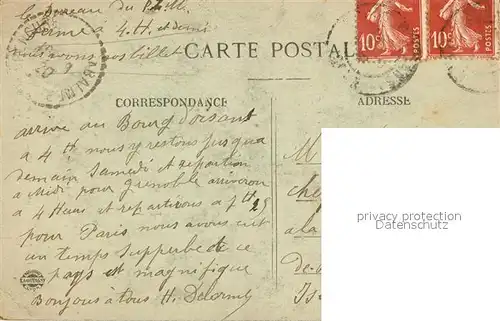 bureau du P.L.M.
ferme à 4.H. et demi
nous avons nos billets
CARTE POSTALE
10c
10c
CORRESPONDANCE
ADRESSE
arrivé au Bourg d'oisant
a 4 h. nous y restons jusqua
demain Samedi et repartion
a Midi pour Grenoble arriveron
a 4 Heures et repartirons a 7 H 25
pour Paris nous avons eut
un temps supperbe et ce
pays est magnifique
Bonjous à tous H. Delorme
M
che
a la
de
Is
privacy protection
Datenschutz